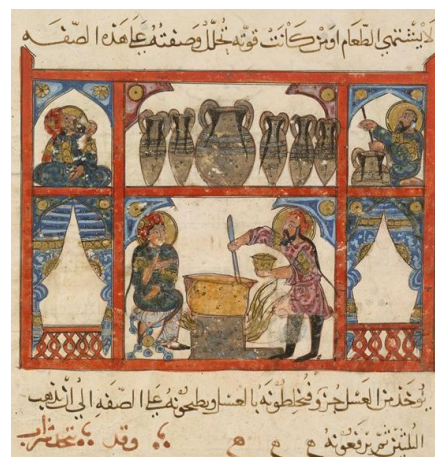 لا يشتهي الطعام اومن كانت قوته تحلل وصفته على هذه الصفه
يوخذ من العسل جزو فيخلطونه بالعسل ويطبخونه على الصفه الى ان يذهب
اللبن ثم يرفعونه ه ه ه وقد يتخذ شراب